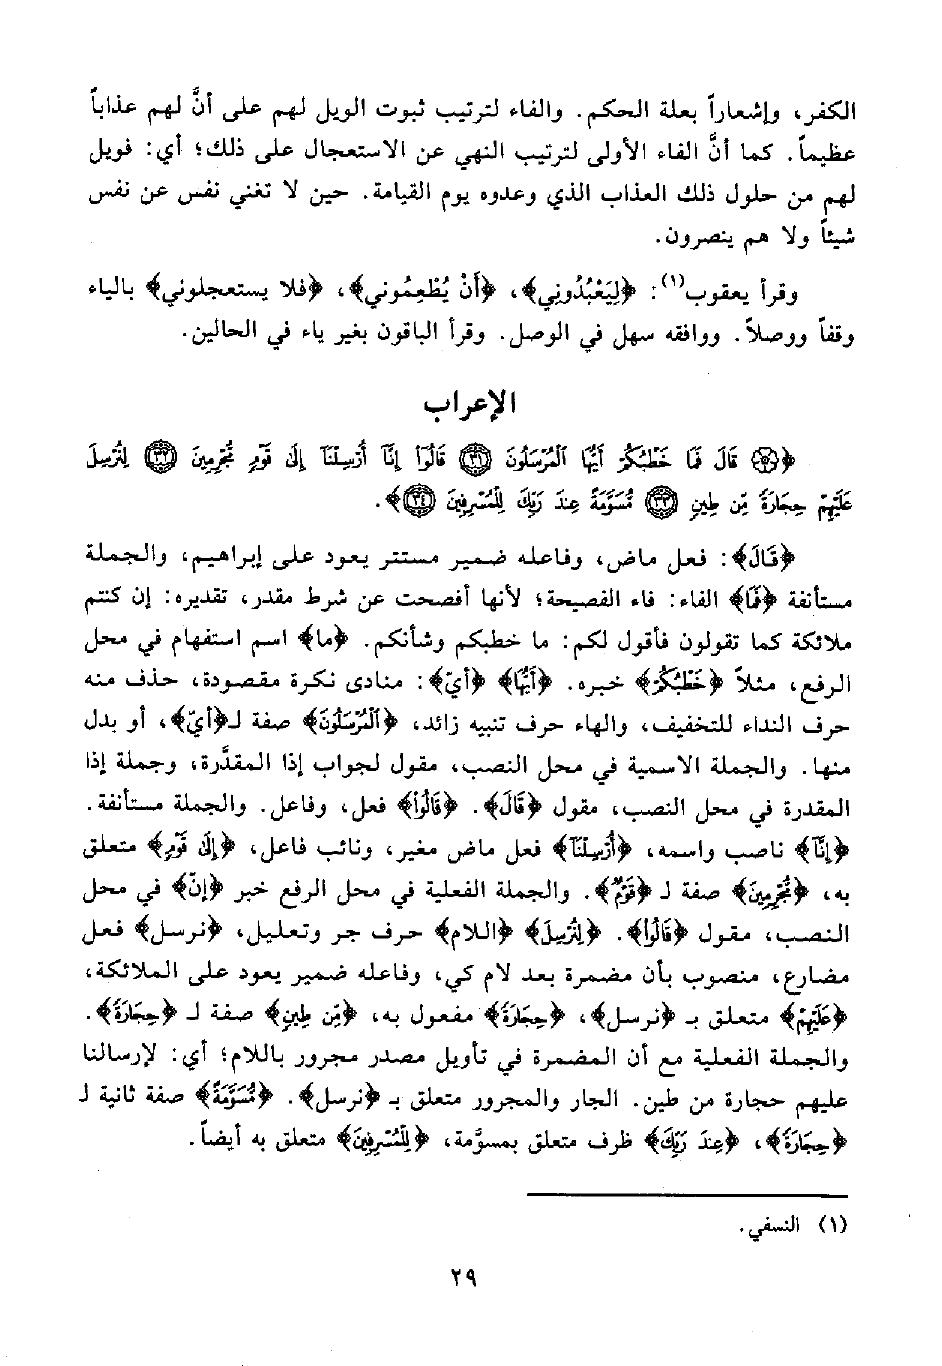 الكفر، وإشعاراً بعلة الحكم. والفاء لترتيب ثبوت الويل لهم على أنَّ لهم عذاباً
عظيماً. كما أنَّ الفاء الأولى لترتيب النهي عن الاستعجال على ذلك؛ أي: فويل
لهم من حلول ذلك العذاب الذي وعدوه يوم القيامة. حين لا تغني نفس عن نفس
شيئاً ولا هم ينصرون.
وقرأ يعقوب(١): ﴿لِيَعْبُدُونِي﴾، ﴿أَنْ يُطْعِمُوني﴾، ﴿فلا يستعجلوني﴾ بالياء
وقفاً ووصلاً. ووافقه سهل في الوصل. وقرأ الباقون بغير ياء في الحالين.
الإعراب
﴿۞ قَالَ فَمَا خَطْبُكُمْ أَيُّهَا ٱلْمُرْسَلُونَ ٣١ قَالُوٓاْ إِنَّآ أُرْسِلْنَآ إِلَىٰ قَوْمٍ مُّجْرِمِينَ ٣٢ لِنُرْسِلَ
عَلَيْهِمْ حِجَارَةً مِّن طِينٍ ٣٣ مُّسَوَّمَةً عِندَ رَبِّكَ لِلْمُسْرِفِينَ ٣٤﴾.
﴿قَالَ﴾: فعل ماض، وفاعله ضمير مستتر يعود على إبراهيم، والجملة
مستأنفة ﴿فَمَا﴾ الفاء: فاء الفصيحة؛ لأنها أفصحت عن شرط مقدر، تقديره: إن كنتم
ملائكة كما تقولون فأقول لكم: ما خطبكم وشأنكم. ﴿ما﴾ اسم استفهام في محل
الرفع، مثلاً ﴿خَطْبُكُمْ﴾ خبره. ﴿أَيُّهَا﴾ ﴿أيّ﴾: منادى نكرة مقصودة، حذف منه
حرف النداء للتخفيف، والهاء حرف تنبيه زائد، ﴿ٱلْمُرْسَلُونَ﴾ صفة لـ﴿أيّ﴾، أو بدل
منها. والجملة الاسمية في محل النصب، مقول لجواب إذا المقدَّرة، وجملة إذا
المقدرة في محل النصب، مقول ﴿قَالَ﴾. ﴿قَالُوٓاْ﴾ فعل، وفاعل. والجملة مستأنفة.
﴿إِنَّآ﴾ ناصب واسمه، ﴿أُرْسِلْنَآ﴾ فعل ماض مغير، ونائب فاعل، ﴿إِلَىٰ قَوْمٍ﴾ متعلق
به، ﴿مُّجْرِمِينَ﴾ صفة لـ ﴿قَوْمٌ﴾. والجملة الفعلية في محل الرفع خبر ﴿إنّ﴾ في محل
النصب، مقول ﴿قَالُوٓاْ﴾. ﴿لِنُرْسِلَ﴾ ﴿اللام﴾ حرف جر وتعليل، ﴿نرسل﴾ فعل
مضارع، منصوب بأن مضمرة بعد لام كي، وفاعله ضمير يعود على الملائكة،
﴿عَلَيْهِمْ﴾ متعلق بـ ﴿نرسل﴾، ﴿حِجَارَةً﴾ مفعول به، ﴿مِّن طِينٍ﴾ صفة لـ ﴿حِجَارَةً﴾.
والجملة الفعلية مع أن المضمرة في تأويل مصدر مجرور باللام؛ أي: لإرسالنا
عليهم حجارة من طين. الجار والمجرور متعلق بـ ﴿نرسل﴾. ﴿مُّسَوَّمَةً﴾ صفة ثانية لـ
﴿حِجَارَةً﴾، ﴿عِندَ رَبِّكَ﴾ ظرف متعلق بمسوَّمة، ﴿لِلْمُسْرِفِينَ﴾ متعلق به أيضاً.
(١) النسفي.
٢٩